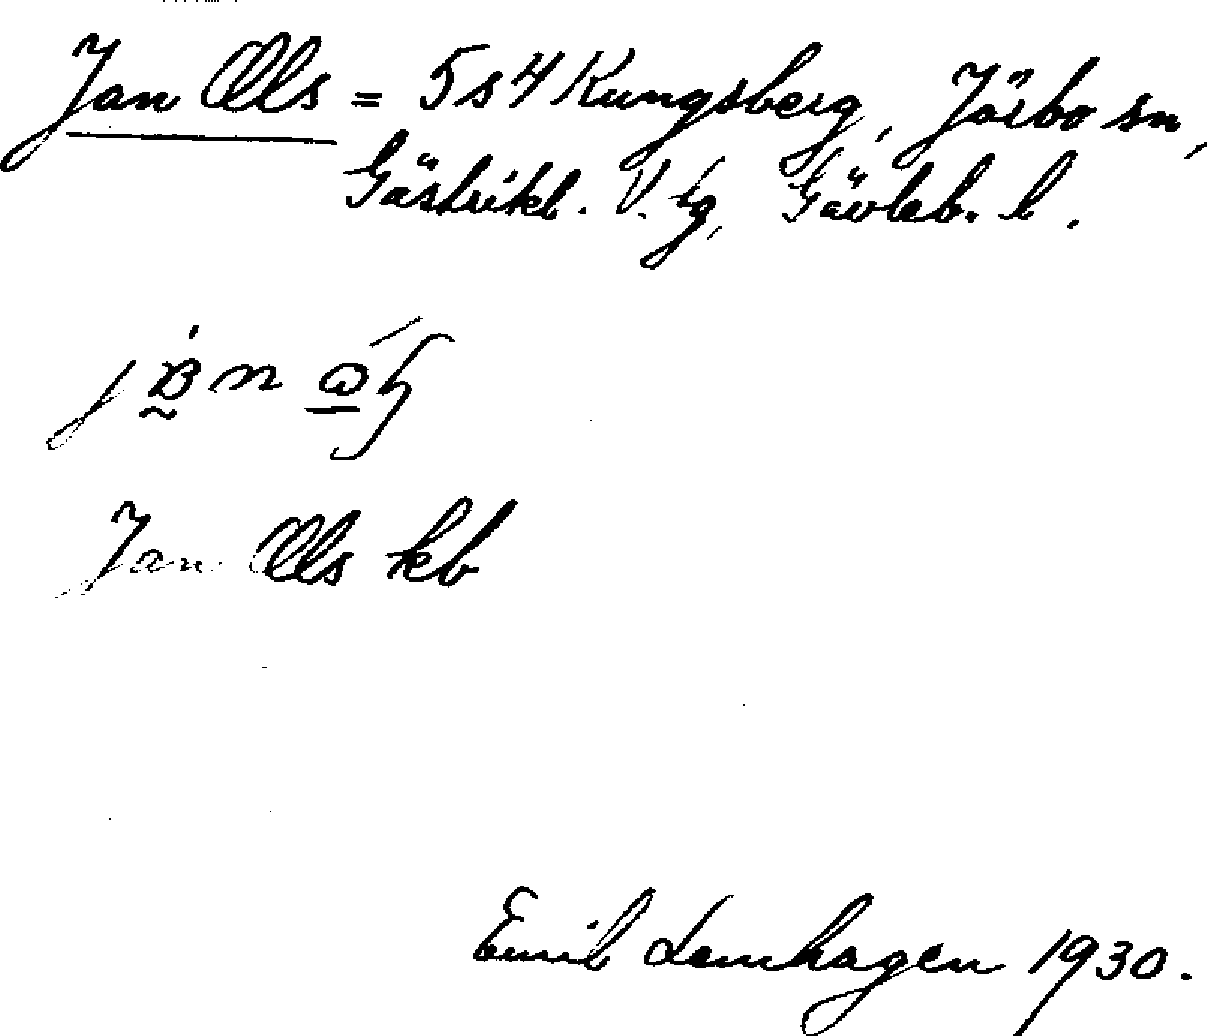 Jan Ols = 5s4 Kungsberg, Järbo sn,
Gästrikl. V. tg, Gävleb. l.
Jan Ols kb
Emil Lemhagen 1930.